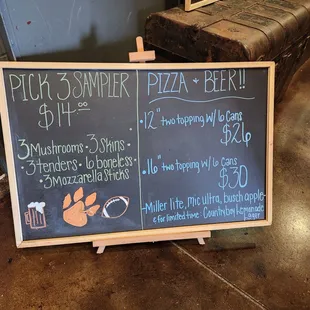 PICK 3 SAMPLER
$14.00
3 Mushrooms · 3 Skins
3 tenders · 6 boneless
3 Mozzarella Sticks
PIZZA + BEER!!
12" two topping w/ 6 Cans
$26
16" two topping w/ 6 cans
$30
Miller lite, mic ultra, busch apple
& for limited time Countryboy Lemonade